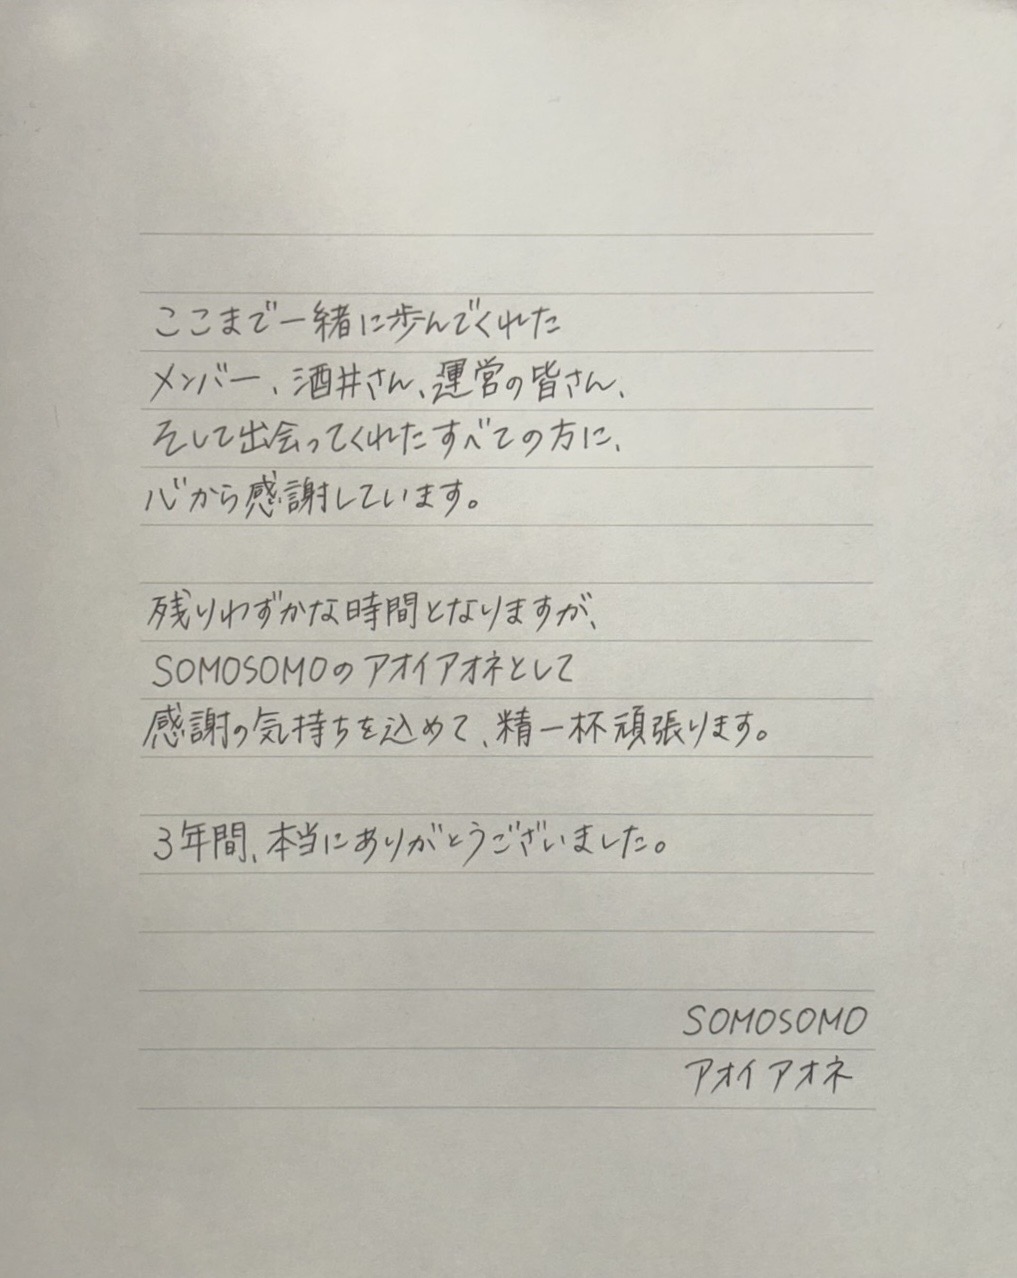 ここまで一緒に歩んでくれた
メンバー、酒井さん、運営の皆さん、
そして出会ってくれたすべての方に、
心から感謝しています。
残りわずかな時間となりますが、
SOMOSOMOのアオイアオネとして
感謝の気持ちを込めて、精一杯頑張ります。
3年間、本当にありがとうございました。
SOMOSOMO
アオイアオネ